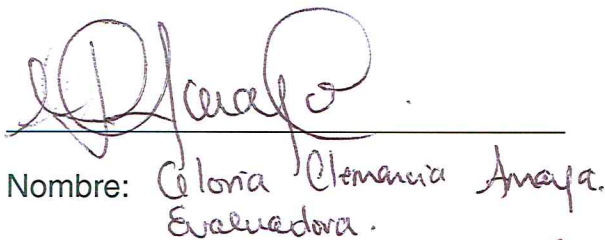 Nombre: Gloria Clemencia Amaya.
Evaluadora.